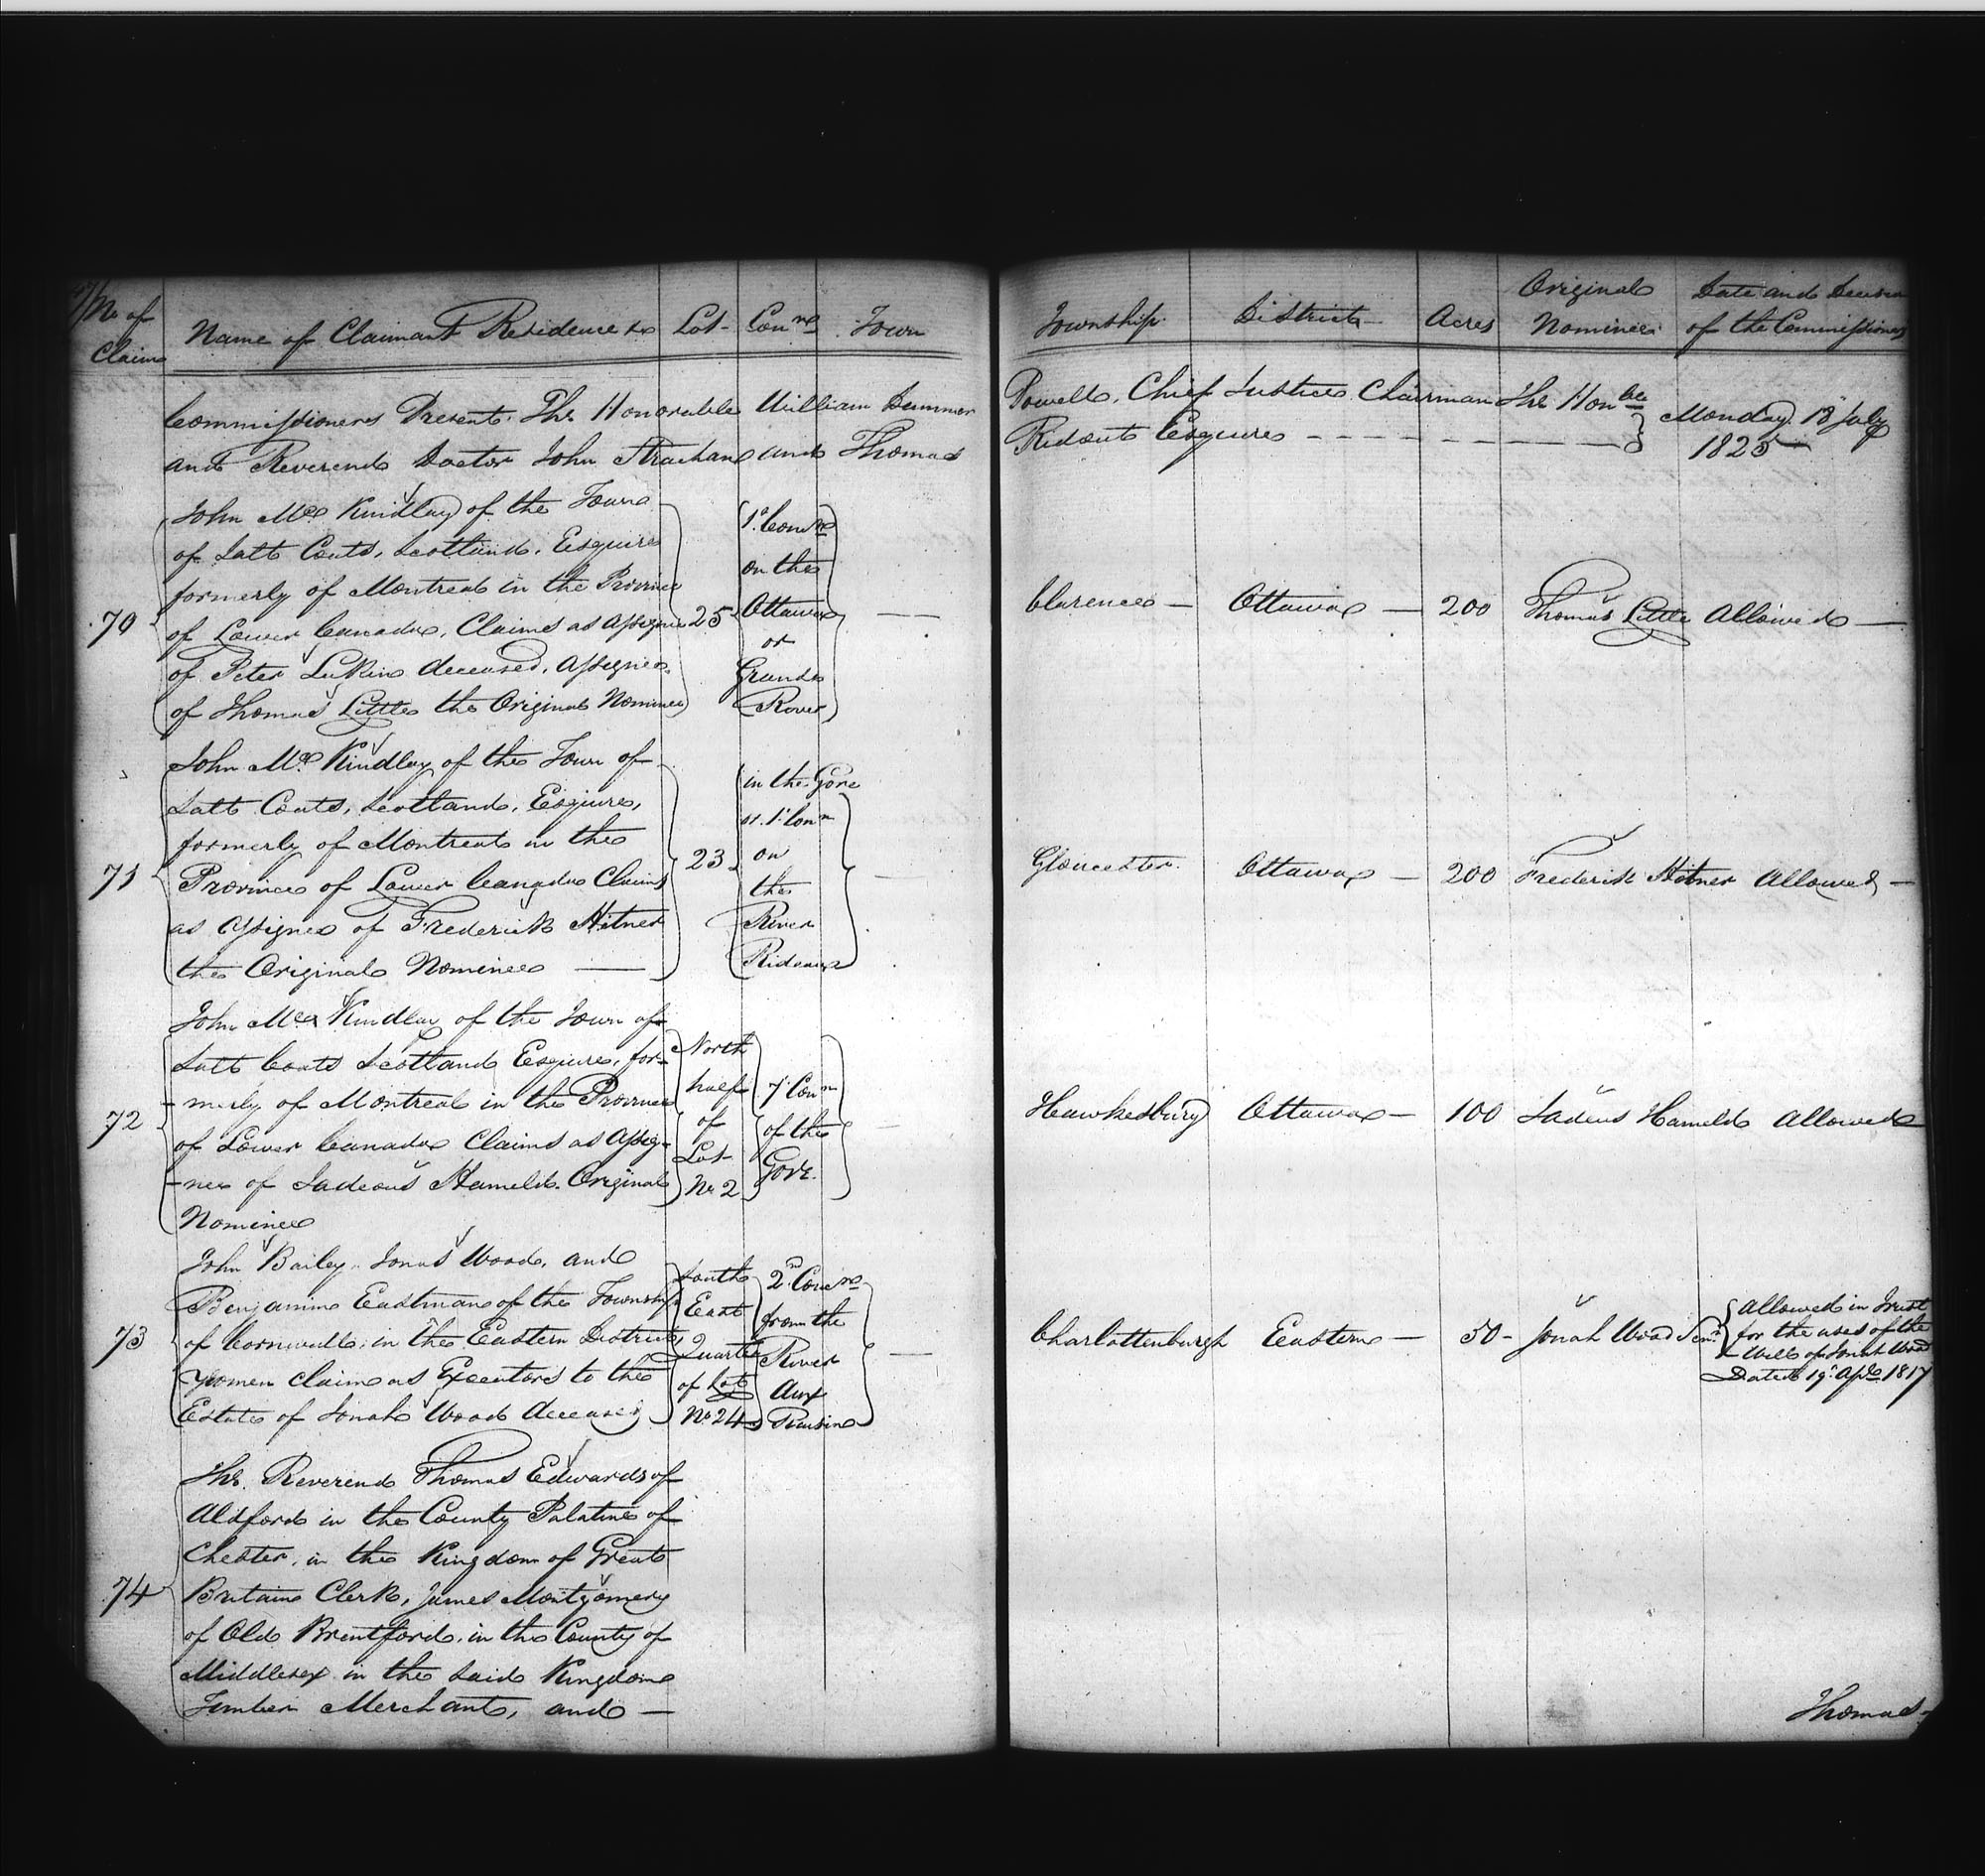 No. of Claim
Name of Claimant Residence &c
Lot
Conn.
Town
Township
District
Acres
Original Nominee
Date and Decision of the Commissioners
Commissioners Present. The Honorable William Dummer Powell, Chief Justice Chairman The Honble
and Reverend Doctor John Strachan and Thomas Ridout Esquires
Monday 18 July
1825
70
John Mc Kindlay of the Town
of Salt Coats, Scotland, Esquire
formerly of Montreal in the Province
of Lower Canada, Claims as Assignee
of Peter Lukin deceased, Assignee
of Thomas Little the Original Nominee
25
1st Conn
on the
Ottawa
or
Grand
River
Clarence
Ottawa
200
Thomas Little
Allowed
71
John Mc Kindlay of the Town of
Salt Coats, Scotland, Esquire,
formerly of Montreal in the
Province of Lower Canada Claims
as Assignee of Frederick Hitner
the Original Nominee
23
in the Gore
or 1st Conn
on
the
River
Rideau
Gloucester
Ottawa
200
Frederick Hitner
Allowed
72
John Mc Kindlay of the Town of
Salt Coats Scotland Esquire, for-
-merly of Montreal in the Province
of Lower Canada Claims as Assig-
-nee of Hameld. Original
Nominee
North
half
of
Lot
No. 2
7 Conn
of the
Gore.
Hawkesbury
Ottawa
100
Hameld
Allowed
73
John Bailey. Jonas Wood, and
Benjamin Eastman of the Township
of Cornwall, in the Eastern District,
Yeomen claim as Executors to the
Estate of Jonah Wood deceased
South
East
Quarter
of Lot
No. 24
2nd Conn
from the
River
Aux
Raisin
Charlottenburgh
Eastern
50
Jonah Wood Senr
Allowed in Trust
for the uses of the
Will of Jonah Wood
Dated 19 Apl. 1817
74
The Reverend Thomas Edwards of
Aldford in the County Palatine of
Chester, in the Kingdom of Great
Britain Clerk, James Montgomery
of Old Brentford, in the County of
Middlesex in the said Kingdom
Timber Merchant, and
Thomas